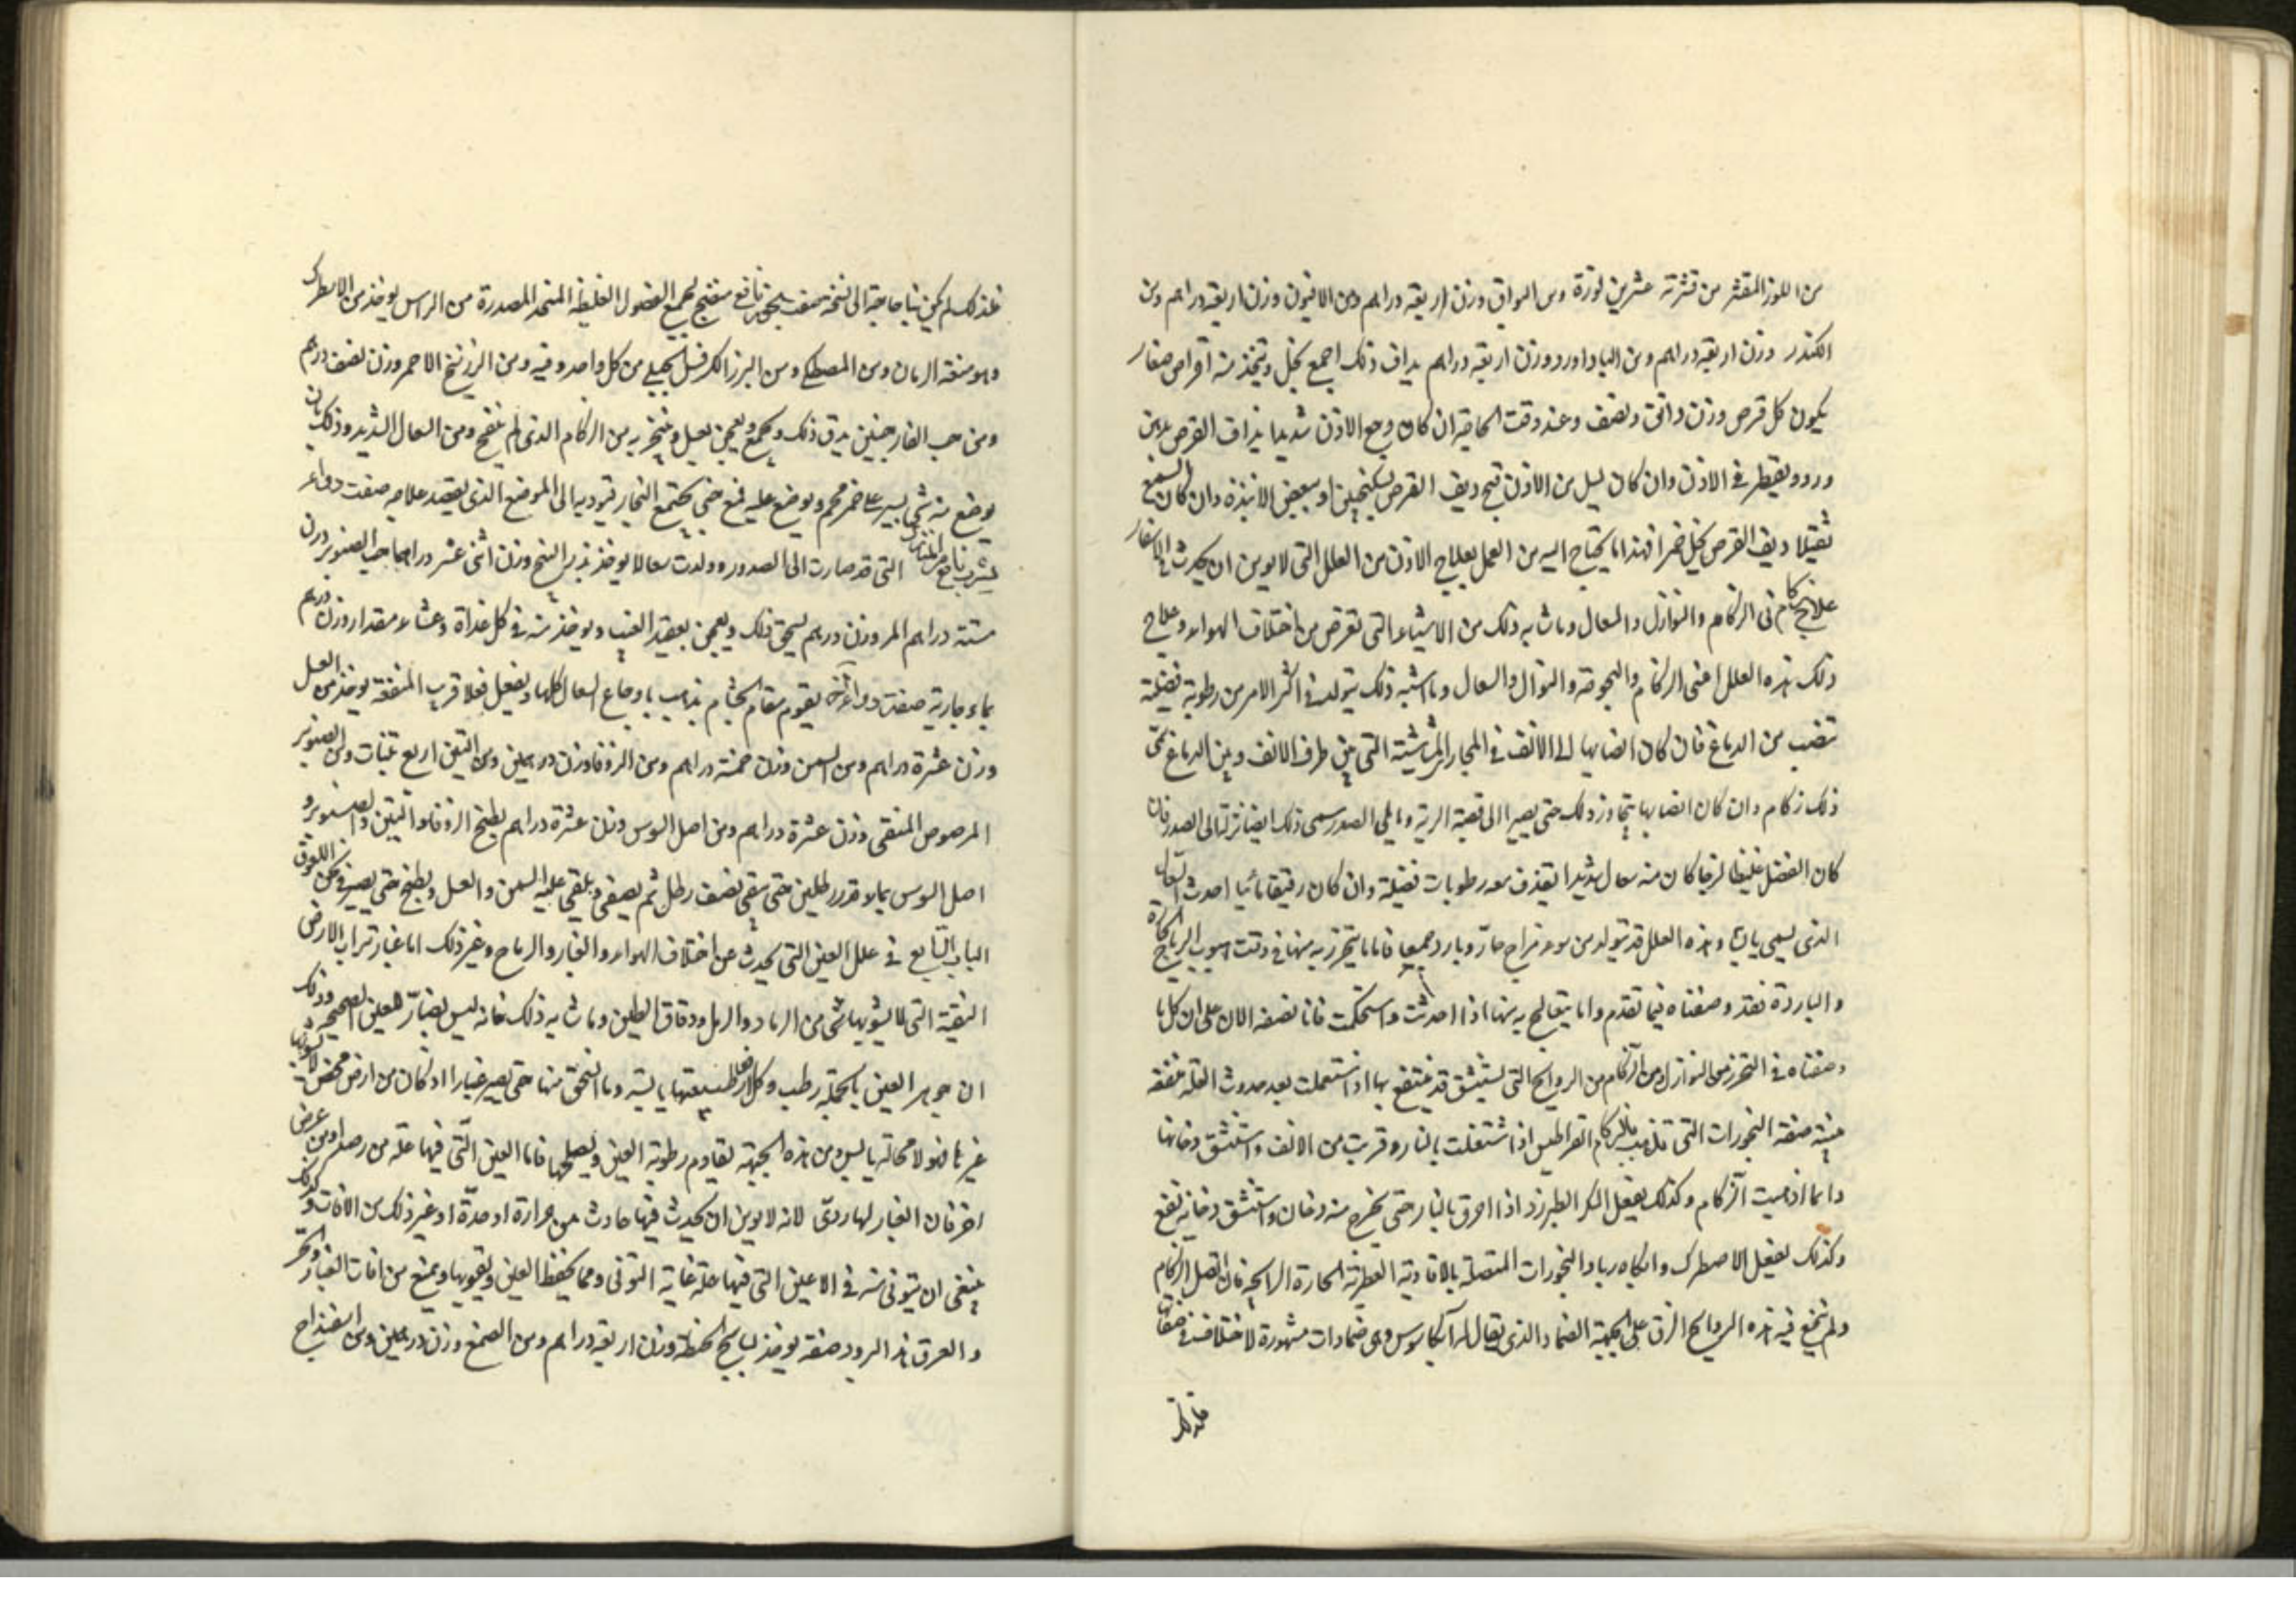 من اللوز المقشر من قشرته عشرين لوزة ومن البواق وزن اربعة دراهم ومن الافيون وزن اربعة دراهم ومن
الكندر وزن اربعة دراهم ومن الباداورد وزن اربعة دراهم يداف ذلك اجمع بخل ويتخذ منه اقراص صغار
يكون كل قرص وزن دانق ونصف وعند وقت الحاجة ان كان وجع الاذن شديدا يداف القرص بدهن
ورد ويقطر في الاذن وان كان يسيل من الاذن قيح ديف القرص بسكنجبين او ببعض الانبذة وان كان السمع
ثقيلا ديف القرص بخل خمر فهذا ما يحتاج اليه من العمل بعلاج الاذن من العلل التي لا يومن ان يحدث في الاسفار
في الزكام والنوازل والسعال وما شابه ذلك من الاشياء التي تعرض من اختلاف الهواء وعلاج
ذلك هذه العلل اعني الزكام والبحوحة والنوازل والسعال وما اشبه ذلك يتولد في اكثر الامر من رطوبة فضلية
تنصب من الدماغ فان كان انصبابها الى الانف في المجار المشاشية التي بين طرف الانف وبين الدماغ سمى
ذلك زكام وان كان انصبابها يتجاوز ذلك حتى يصير الى قصبة الرية وما يلي الصدر سمى ذلك ايضا نزلة الى الصدر فان
كان الفضل غليظا لزجا كان منه سعال شديدا يقذف معه رطوبات فضلية وان كان رقيقا مائيا احدث السعال
الذي يسمى يابسا وهذه العلل قد تتولد من سوء مزاج حار وبارد جميعا فاما ما يتحرز به منها في وقت هبوب الرياح الحارة
والباردة فقد وصفناه فيما تقدم واما ما يتعالج به منها اذا حدثت واستحكمت فانا نصفه الان على ان كل ما
وصفناه في التحرز من النوازل ومن الزكام من الروائح التي تستنشق قد ينتفع بها اذا استعملت بعد حدوث العلة منفعة
بينة صفة البخورات التي تذهب بالزكام القراطيس اذا اشتعلت بالنار وقربت من الانف واستنشق دخانها
دائما اذهبت الزكام وكذلك يفعل السكر الطبرزد اذا احرق بالنار حتى يخرج منه دخان واستنشق دخانه نفع
وكذلك يفعل الاصطرك والكاه ربا والبخورات المتصلة بالافاوية العطرية الحارة الرائحة فان اتصل الزكام
ولم تنجع فيه هذه الروائح الزق على الجبهة الضماد الذي يقال له وهي ضمادات مشهورة لا اختلاف في صفاتها
فلذلك
فلذلك لم يكن بنا حاجة الى نسخه صفة بخور نافع منضج لجميع الفضول الغليظة المنحدرة من الراس يوخذ من الاصطرك
وهو ميعة الرمان ومن المصطكى ومن البرز الكرفس الجبلي من كل واحد وقية ومن الزرنيخ الاحمر وزن نصف درهم
ومن حب الغار حبتين يدق ذلك ويجمع ويعجن بعسل ويتبخر به من الزكام الذي لم ينضج ومن السعال الشديد وذلك بان
يوضع منه شي يسير على جمر فحم ويوضع عليه قمع حتى يجتمع البخار فيوديه الى الموضع الذي يقصد علاجه صفة دواء
يشرب نافع من التي قد صارت الى الصدور وولدت سعالا يوخذ بزر البنج وزن اثنى عشر درهما حب الصنوبر وزن
ستة دراهم المر وزن درهم يسحق ذلك ويعجن بعقيد العنب ويوخذ منه في كل غداة وعشاء مقدار وزن درهم
بماء صفة دواء اخر يقوم مقام يذهب باوجاع السعال كلها ويفعل فعلا قريب المنفعة يوخذ من العسل
وزن عشرة دراهم ومن السمن وزن خمسة دراهم ومن الزوفا وزن درهمين ومن التين اربع تينات ومن الصنوبر
المرضوض المنقى وزن عشرة دراهم ومن اصل السوس وزن عشرة دراهم يطبخ الزوفا والتين والصنوبر و
اصل السوس بماء قدر رطلين حتى يبقى نصف رطل ثم يصفى ويلقى عليه السمن والعسل ويطبخ حتى يصير في ثخن اللعوق
الباب السابع في علل العين التي تحدث عن اختلاف الهواء والغبار والرياح وغير ذلك اما غبار تراب الارض
النقية التي لا يشوبها شي من الرماد والرمل ودقاق الطين وما شابه ذلك فانه ليس بضار للعين الصحيحة وذلك
ان جوهر العين بالجملة رطب وكل ارض طبيعتها يابسة وما انسحق منها حتى يصير غبارا اذ كان من ارض محضة لا يشوبها
غيرها فهو لا محالة يابس ومن هذه الجهة تقاوم رطوبة العين ويصلحها فاما العين التي فيها علة من رمد او من عرض
اخر فان الغبار لها ردى لانه لا يومن ان يحدث فيها حادث من حرارة او حدة او غير ذلك من الافات ولذلك
ينبغي ان يتوقى منه في الاعين التي فيها علة غاية التوقي ومما يحفظ العين ويقويها ويمنع من افات الغبار والحر
والعرق هذا البرود صفته يوخذ نشاستج الحنطة وزن اربعة دراهم ومن الصمغ وزن درهمين ومن اسفيداج